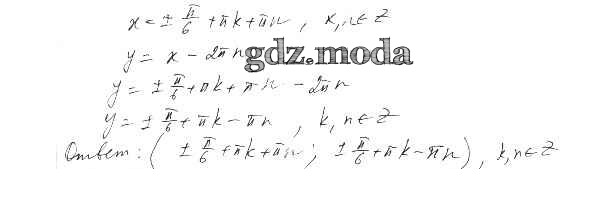 x = ± π/6 + πk + πn , k, n ∈ Z
y = x - 2πn gdz.moda
y = ± π/6 + πk + πn - 2πn
y = ± π/6 + πk - πn , k, n ∈ Z
Ответ: ( ± π/6 + πk + πn ; ± π/6 + πk - πn ) , k, n ∈ Z